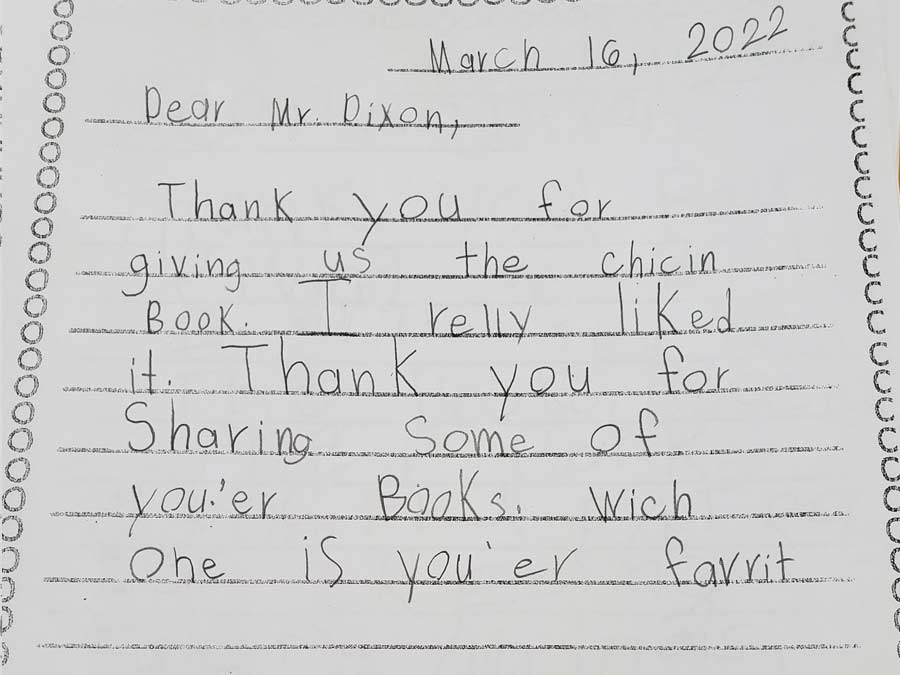 March 16, 2022
Dear Mr. Dixon,
Thank you for
giving us the chicin
Book. I relly liked
it. Thank you for
Sharing some of
you'er Books. Wich
One is you'er favrit